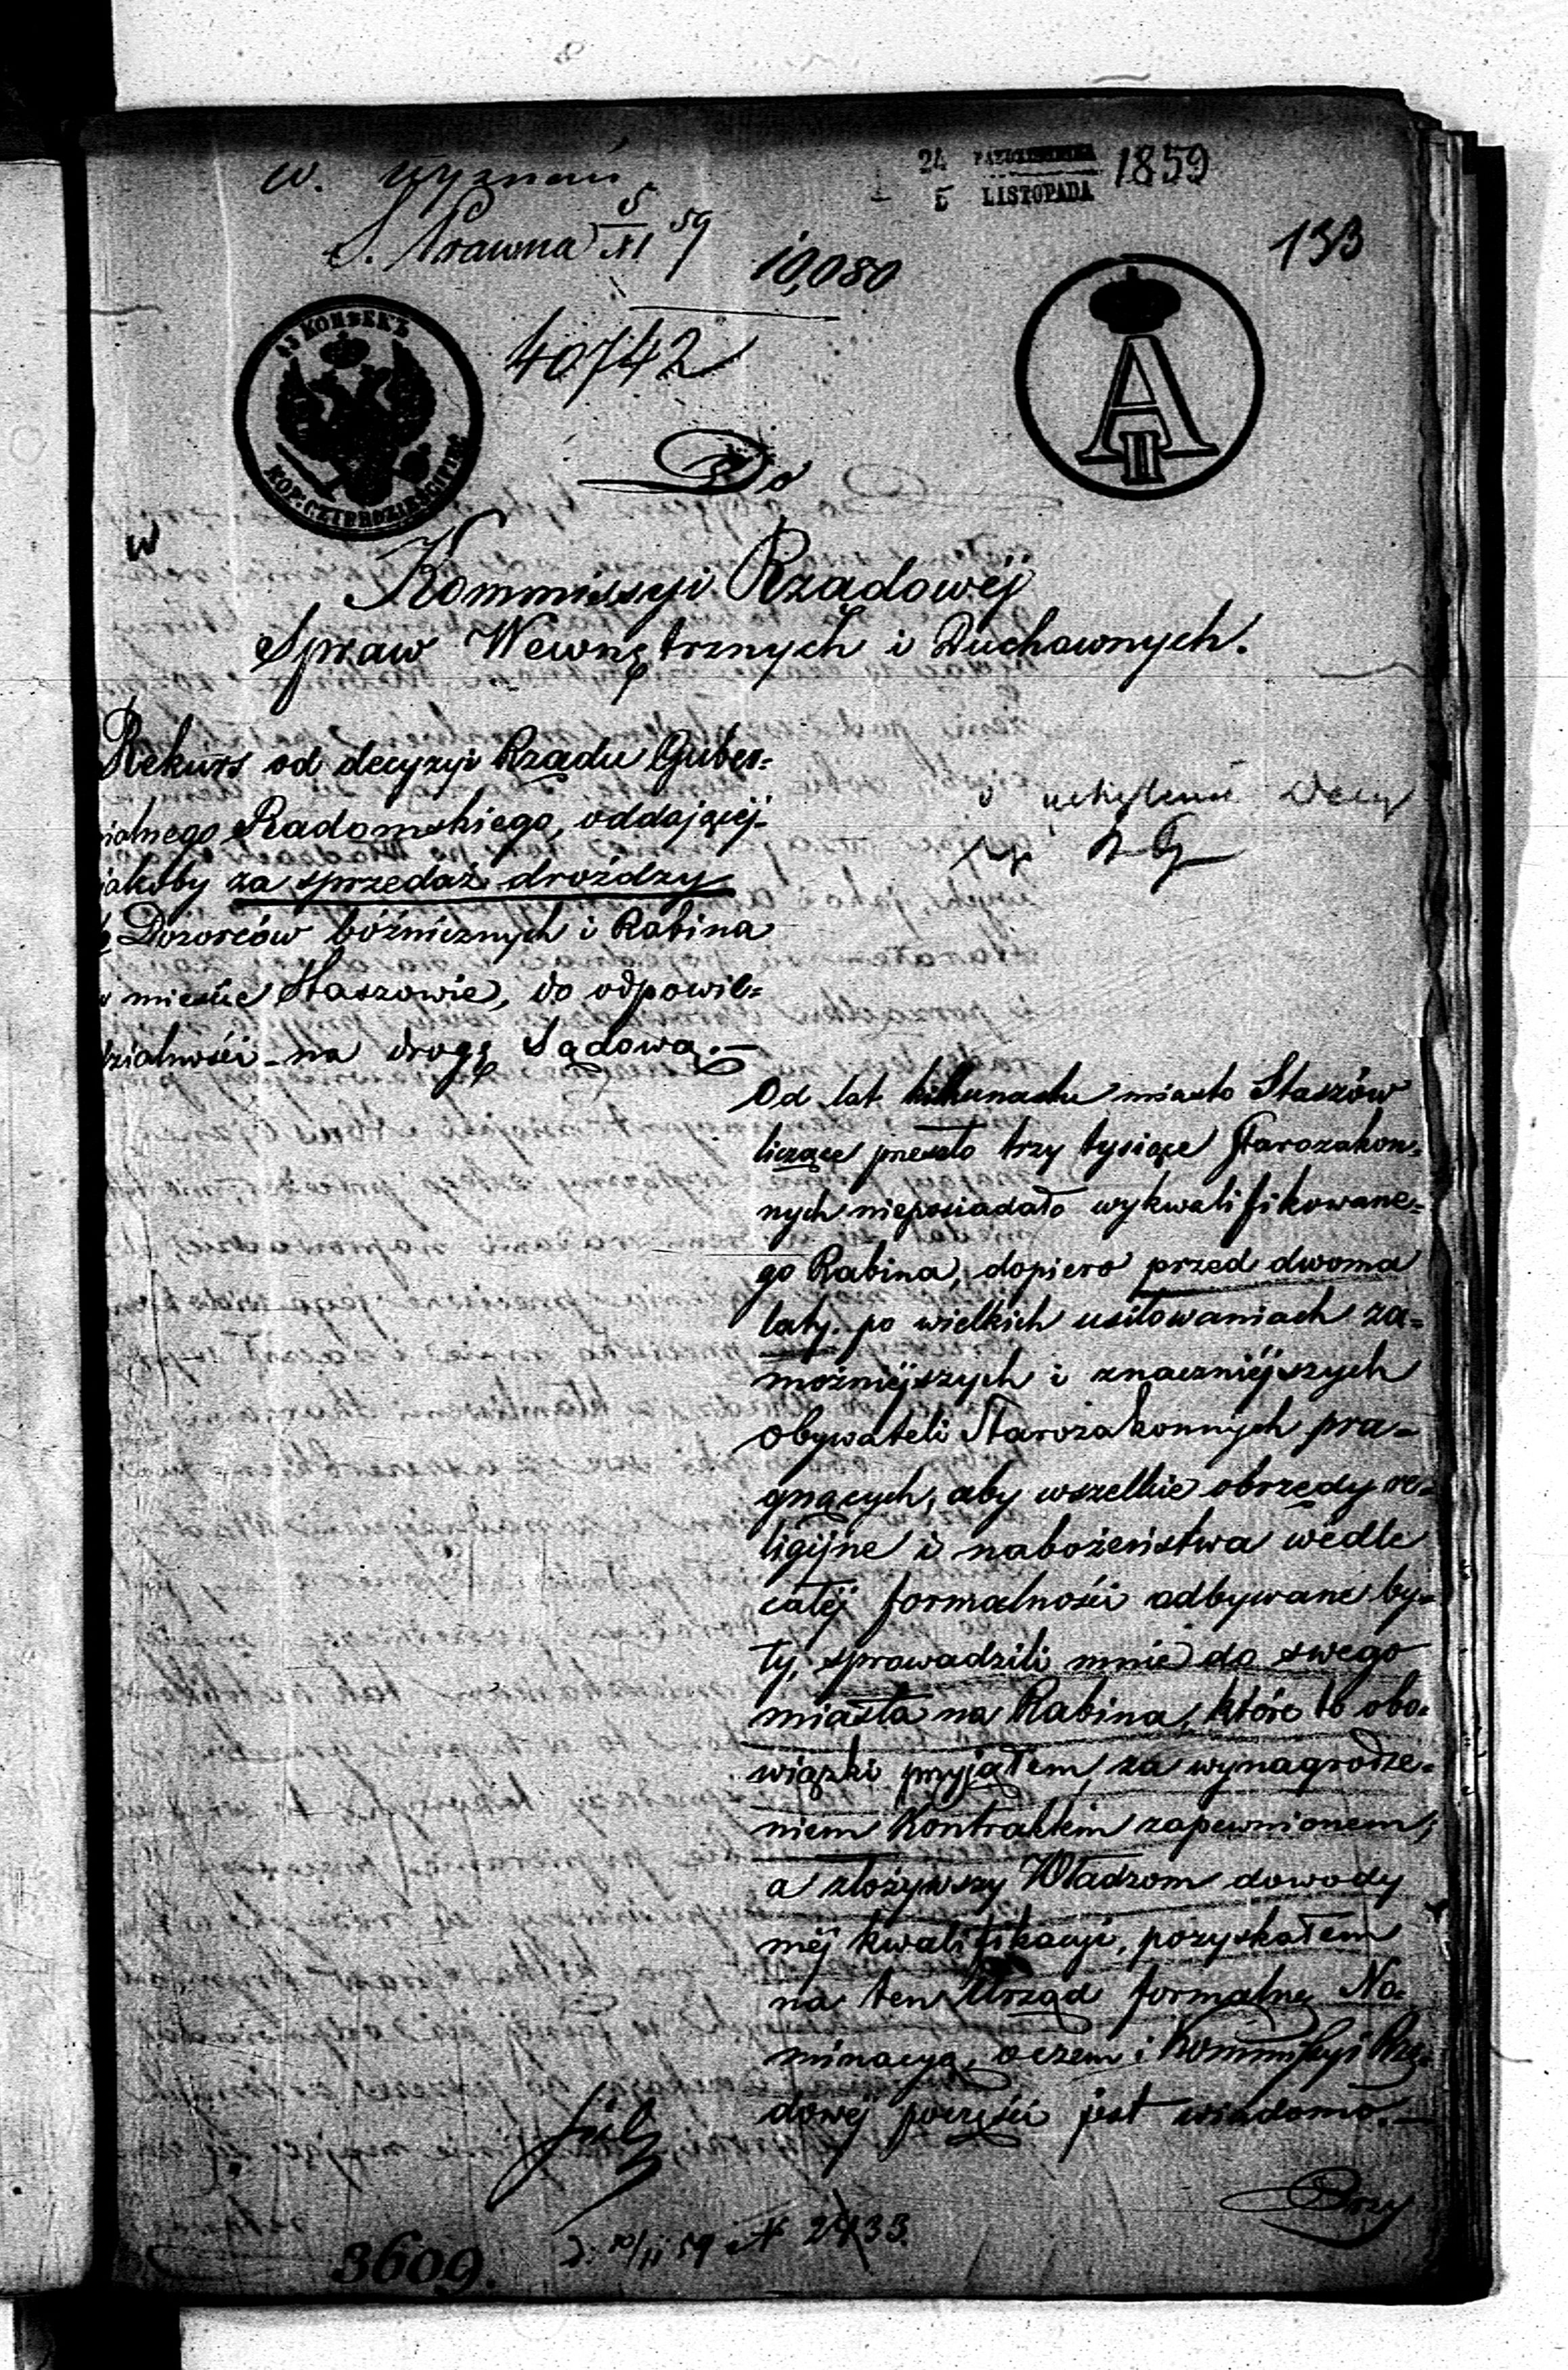 w. wyznań
S. Prawna 5/XI 59
24 PAŹDZIERNIKA
5 LISTOPADA 1859
133
10,080
40742
KOPEEKЪ
KOP. CZTERDZIEŚCI PIĘĆ
A II
Do
w
Kommissyi Rządowéj
Spraw Wewnętrznych i Duchownych.
Rekurs od decyzyi Rządu Guber=
nialnego Radomskiego, oddającéj
jakoby za sprzedaż drożdży
Dozorców bóźnicznych i Rabina
w mieście Staszowie, do odpowie=
dzialności na drogę Sądową.—
o uchylenie Decy
zyi R G
Od lat kilkunastu miasto Staszów
liczące przeszło trzy tysiące Starozakon=
nych nieposiadało wykwalifikowane=
go Rabina, dopiero przed dwoma
laty. po wielkich usiłowaniach za=
możniéjszych i znaczniéjszych
Obywateli Starozakonnych pra=
gnących, aby wszelkie obrzędy re=
ligijne i nabożeństwa wedle
całéj formalności odbywane by=
ły, sprowadzili mnie do swego
miasta na Rabina, które to obo=
wiązki przyjąłem, za wynagrodze=
niem Kontraktem zapewnionem;
a złożywszy Władzom dowody
méj kwalifikacyi, pozyskałem
na ten Urząd formalną No=
minacyą, o czem i Kommissyi Rzą=
dowéj poczęści jest wiadomo.—
Przy
3609.
59 N 2433.